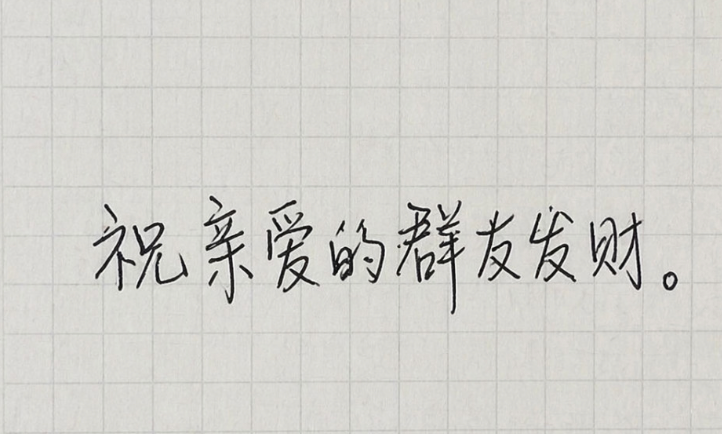 祝亲爱的群友发财。